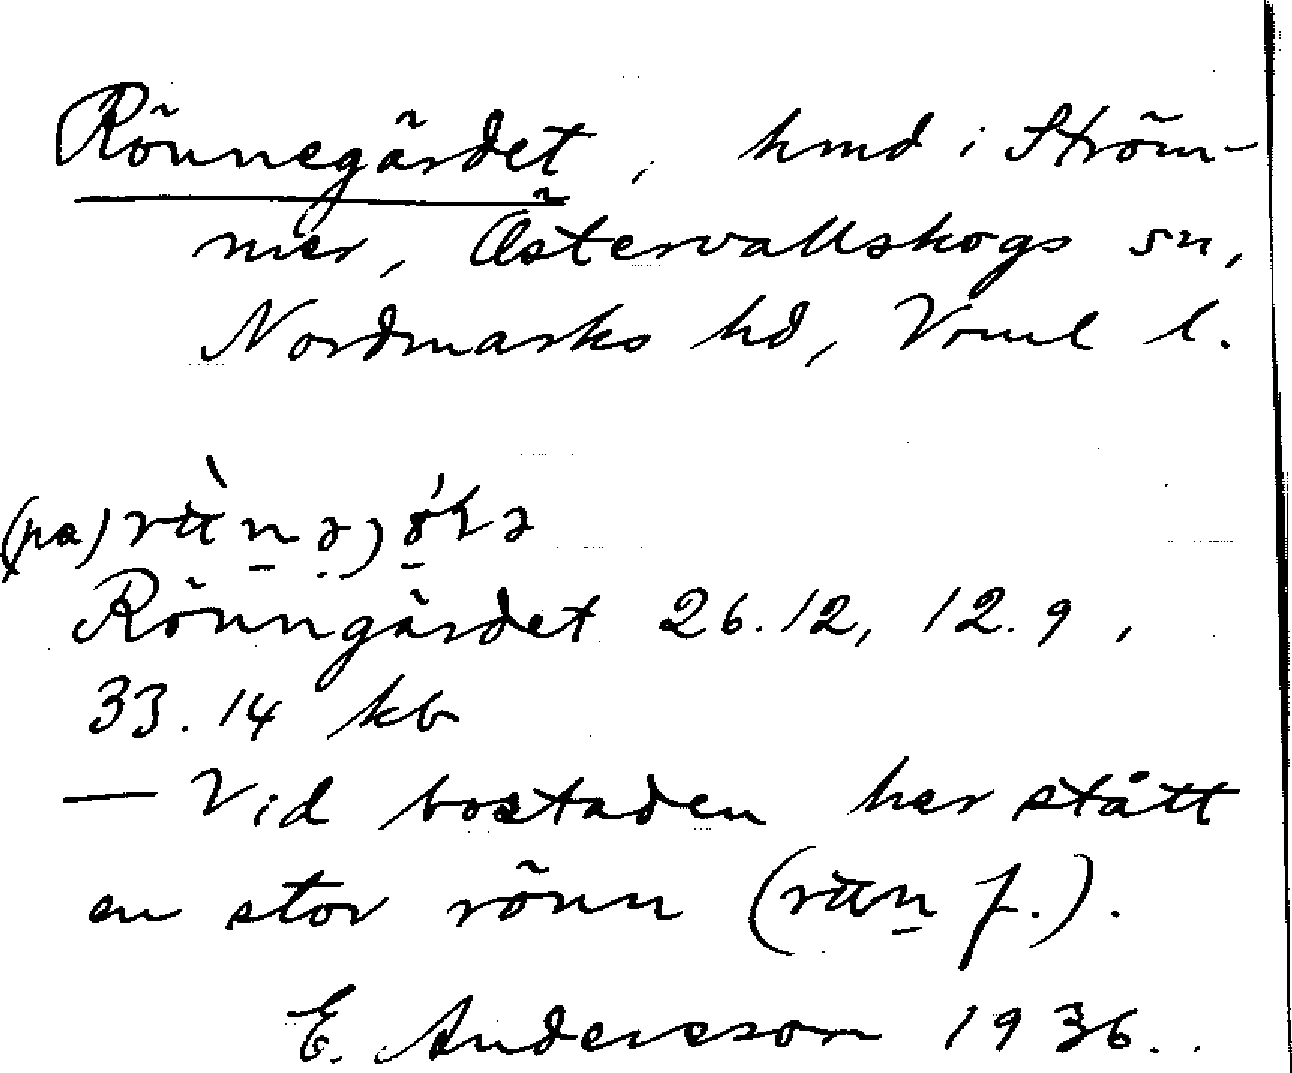 Rönnegärdet, hmd i Ström-
mer, Östervallskogs sn,
Nordmarks hd, Vrml l.
(pa)
Rönngärdet 26.12, 12.9,
33.14 kb
— Vid bostaden har stått
en stor rönn (f.).
E. Andersson 1936.